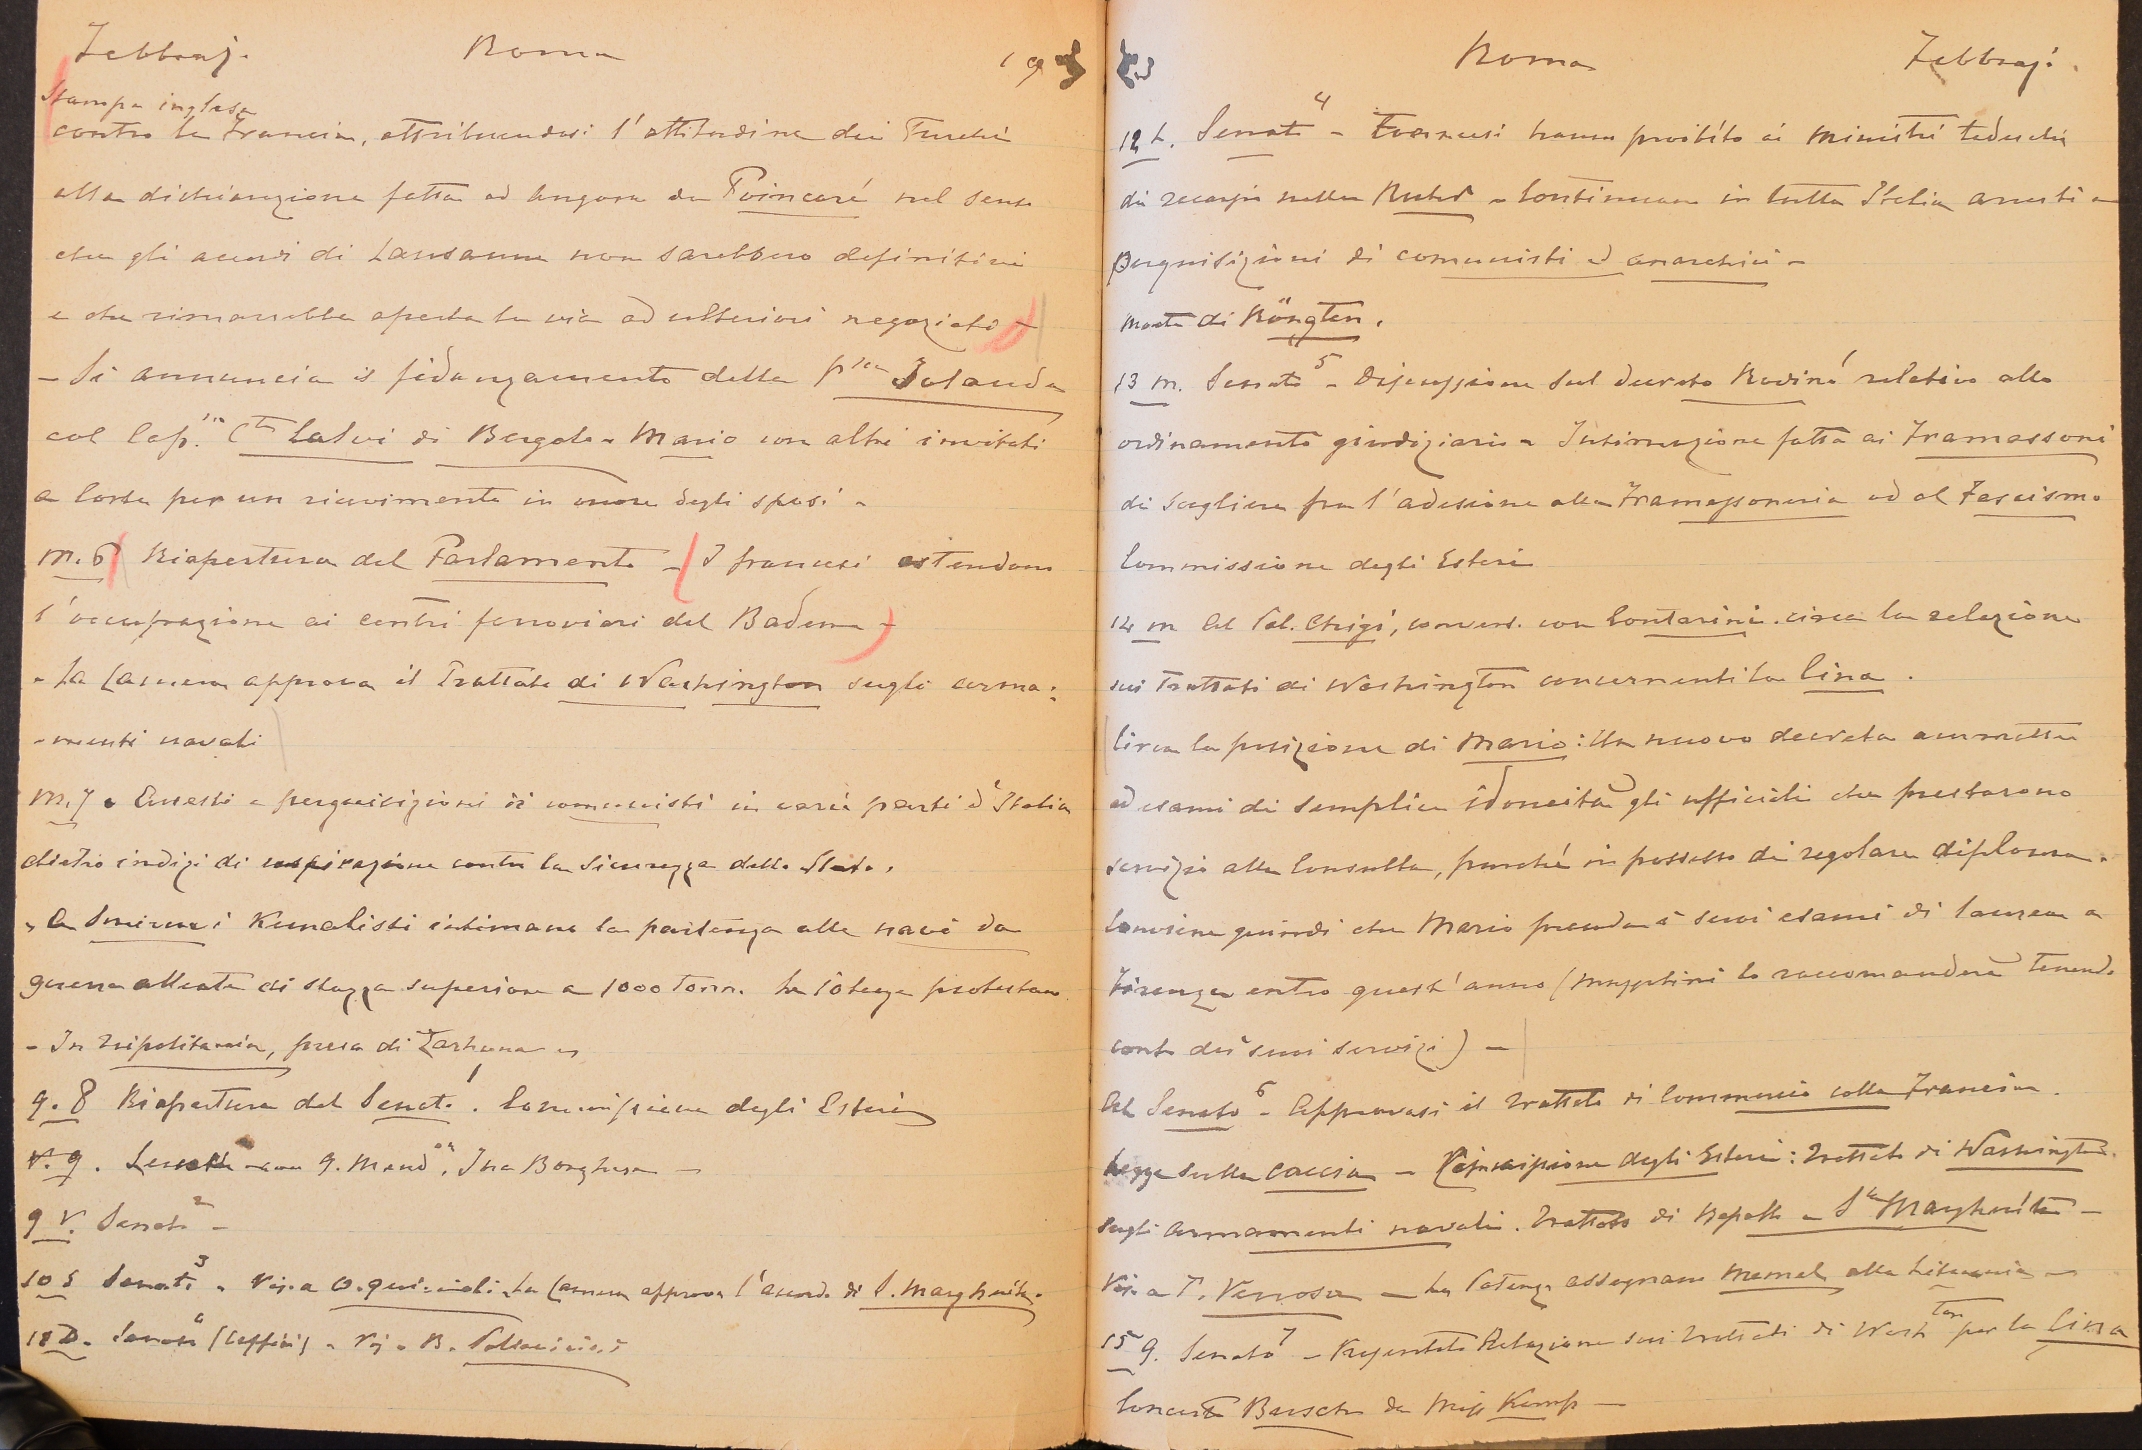 Febbraj. Roma 19
Stampa inglese
contro la Francia, attribuendosi l'attitudine dei Turchi
alla dichiarazione fatta ad Angora da Poincaré nel senso
che gli accordi di Lausanne non sarebbero definitivi
e che rimarrebbe aperta la via ad ulteriori negoziati –
– Si annuncia il fidanzamento della p.ssa Jolanda
col Cap.no Cte Calvi di Bergolo – Mario con altri invitati
a Corte per un ricevimento in onore degli sposi –
M. 6 Riapertura del Parlamento – I francesi estendono
l'occupazione ai centri ferroviari del Baden –
– La Camera approva il Trattato di Washington sugli arma:
– menti navali
M. 7 – Arresti e perquisizioni di comunisti in varie parti d'Italia
dietro indizi di cospirazione contro la Sicurezza dello Stato.
– A Smirne i Kemalisti intimano la partenza alle navi da
guerra alleate di stazza superiore a 1000 Tonn. Le Potenze protestano
– In Tripolitania, presa di Tarhuna –
g. 8 Riapertura del Senato 1. Commissione degli Esteri
V. 9. G. Ina Borghese –
9 V. Senato 2 –
10 S Senato 3 – Vis. a La Camera approva l'accordo di S. Margherita.
11 D. Senato (Uffici) – Vis. a B. Pallavicini
3 Roma Febbraj.
12 L. Senato 4 – Francesi hanno proibito ai Ministri tedeschi
di recarsi nella Ruhr – Continuano in tutta Italia arresti e
perquisizioni di comunisti ed anarchici –
Morte di Röngten.
13 M. Senato 5 – Discussione sul decreto Rodinó relativo allo
ordinamento giudiziario – Intimazione fatta ai Framassoni
di scegliere fra l'adesione alla Framassoneria od al Fascismo
Commissione degli Esteri
14 M Al Pal. Chigi, convers. con Contarini circa la relazione
sui Trattati di Washington concernenti la Cina.
Circa la posizione di Mario: Un nuovo decreto ammette
ad esami di semplice idoneità gli ufficiali che prestarono
servizio alla Consulta, purché in possesso di regolare diploma.
Conviene quindi che Mario prenda i suoi esami di laurea a
Firenze entro quest'anno (Mussolini lo raccomanderà tenendo
conto dei suoi servizi) –
Al Senato 6 – Approvasi il Trattato di Commercio colla Francia.
Legge sulla caccia – Commissione degli Esteri: Trattato di Washington
sugli armamenti navali. Trattato di Rapallo e Sta Margherita –
Vis. a T. Venosa – Le Potenze assegnano Memel alla Lituania –
15 G. Senato 7 – Presentata Relazione sui Trattati di Wash.ton per la Cina
Concerto da Miss Kemp –